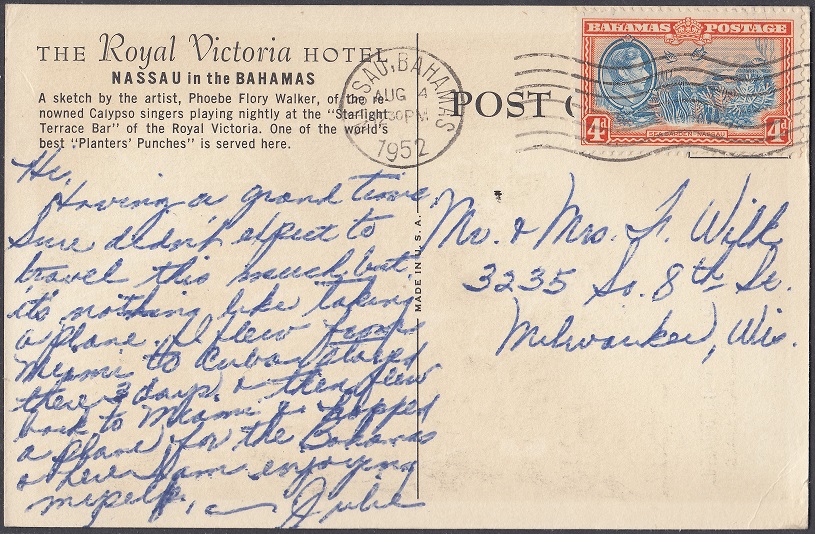 THE Royal Victoria HOTEL
NASSAU in the BAHAMAS
A sketch by the artist, Phoebe Flory Walker, of the re-
nowned Calypso singers playing nightly at the "Starlight
Terrace Bar" of the Royal Victoria. One of the world's
best "Planters' Punches" is served here.
NASSAU, BAHAMAS
AUG 4
30PM
1952
POST C
BAHAMAS POSTAGE
4d 4d
SEA GARDEN · NASSAU
MADE IN U.S.A.
Hi,
Having a grand time
Sure didn't expect to
travel this much but
it's nothing like taking
a plane. I flew from
Miami to Cuba stayed
there 3 days & then flew
back to Miami & hopped
a plane for the Bahamas
& here I am enjoying
myself,
Julie
Mr. & Mrs. F. Wilk
3235 So. 8th St.
Milwaukee, Wis.